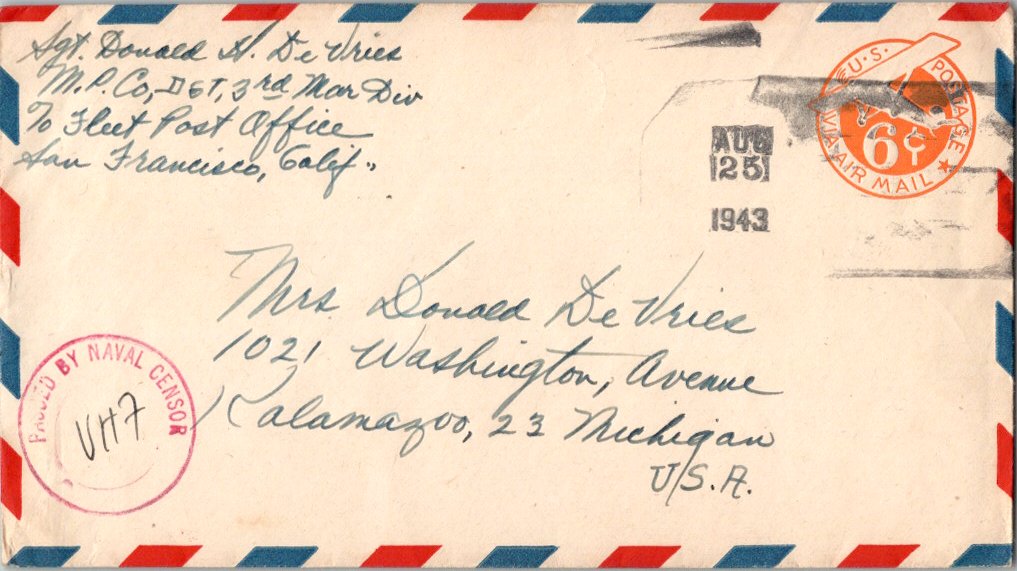 Sgt. Donald H. De Vries
M.P. Co., D GT, 3rd Mar Div
To Fleet Post Office
San Francisco, Calif.
U.S. POSTAGE
6¢
VIA AIR MAIL
AUG
25
1943
Mrs. Donald De Vries
1021 Washington, Avenue
Kalamazoo, 23 Michigan
U.S.A.
PASSED BY NAVAL CENSOR